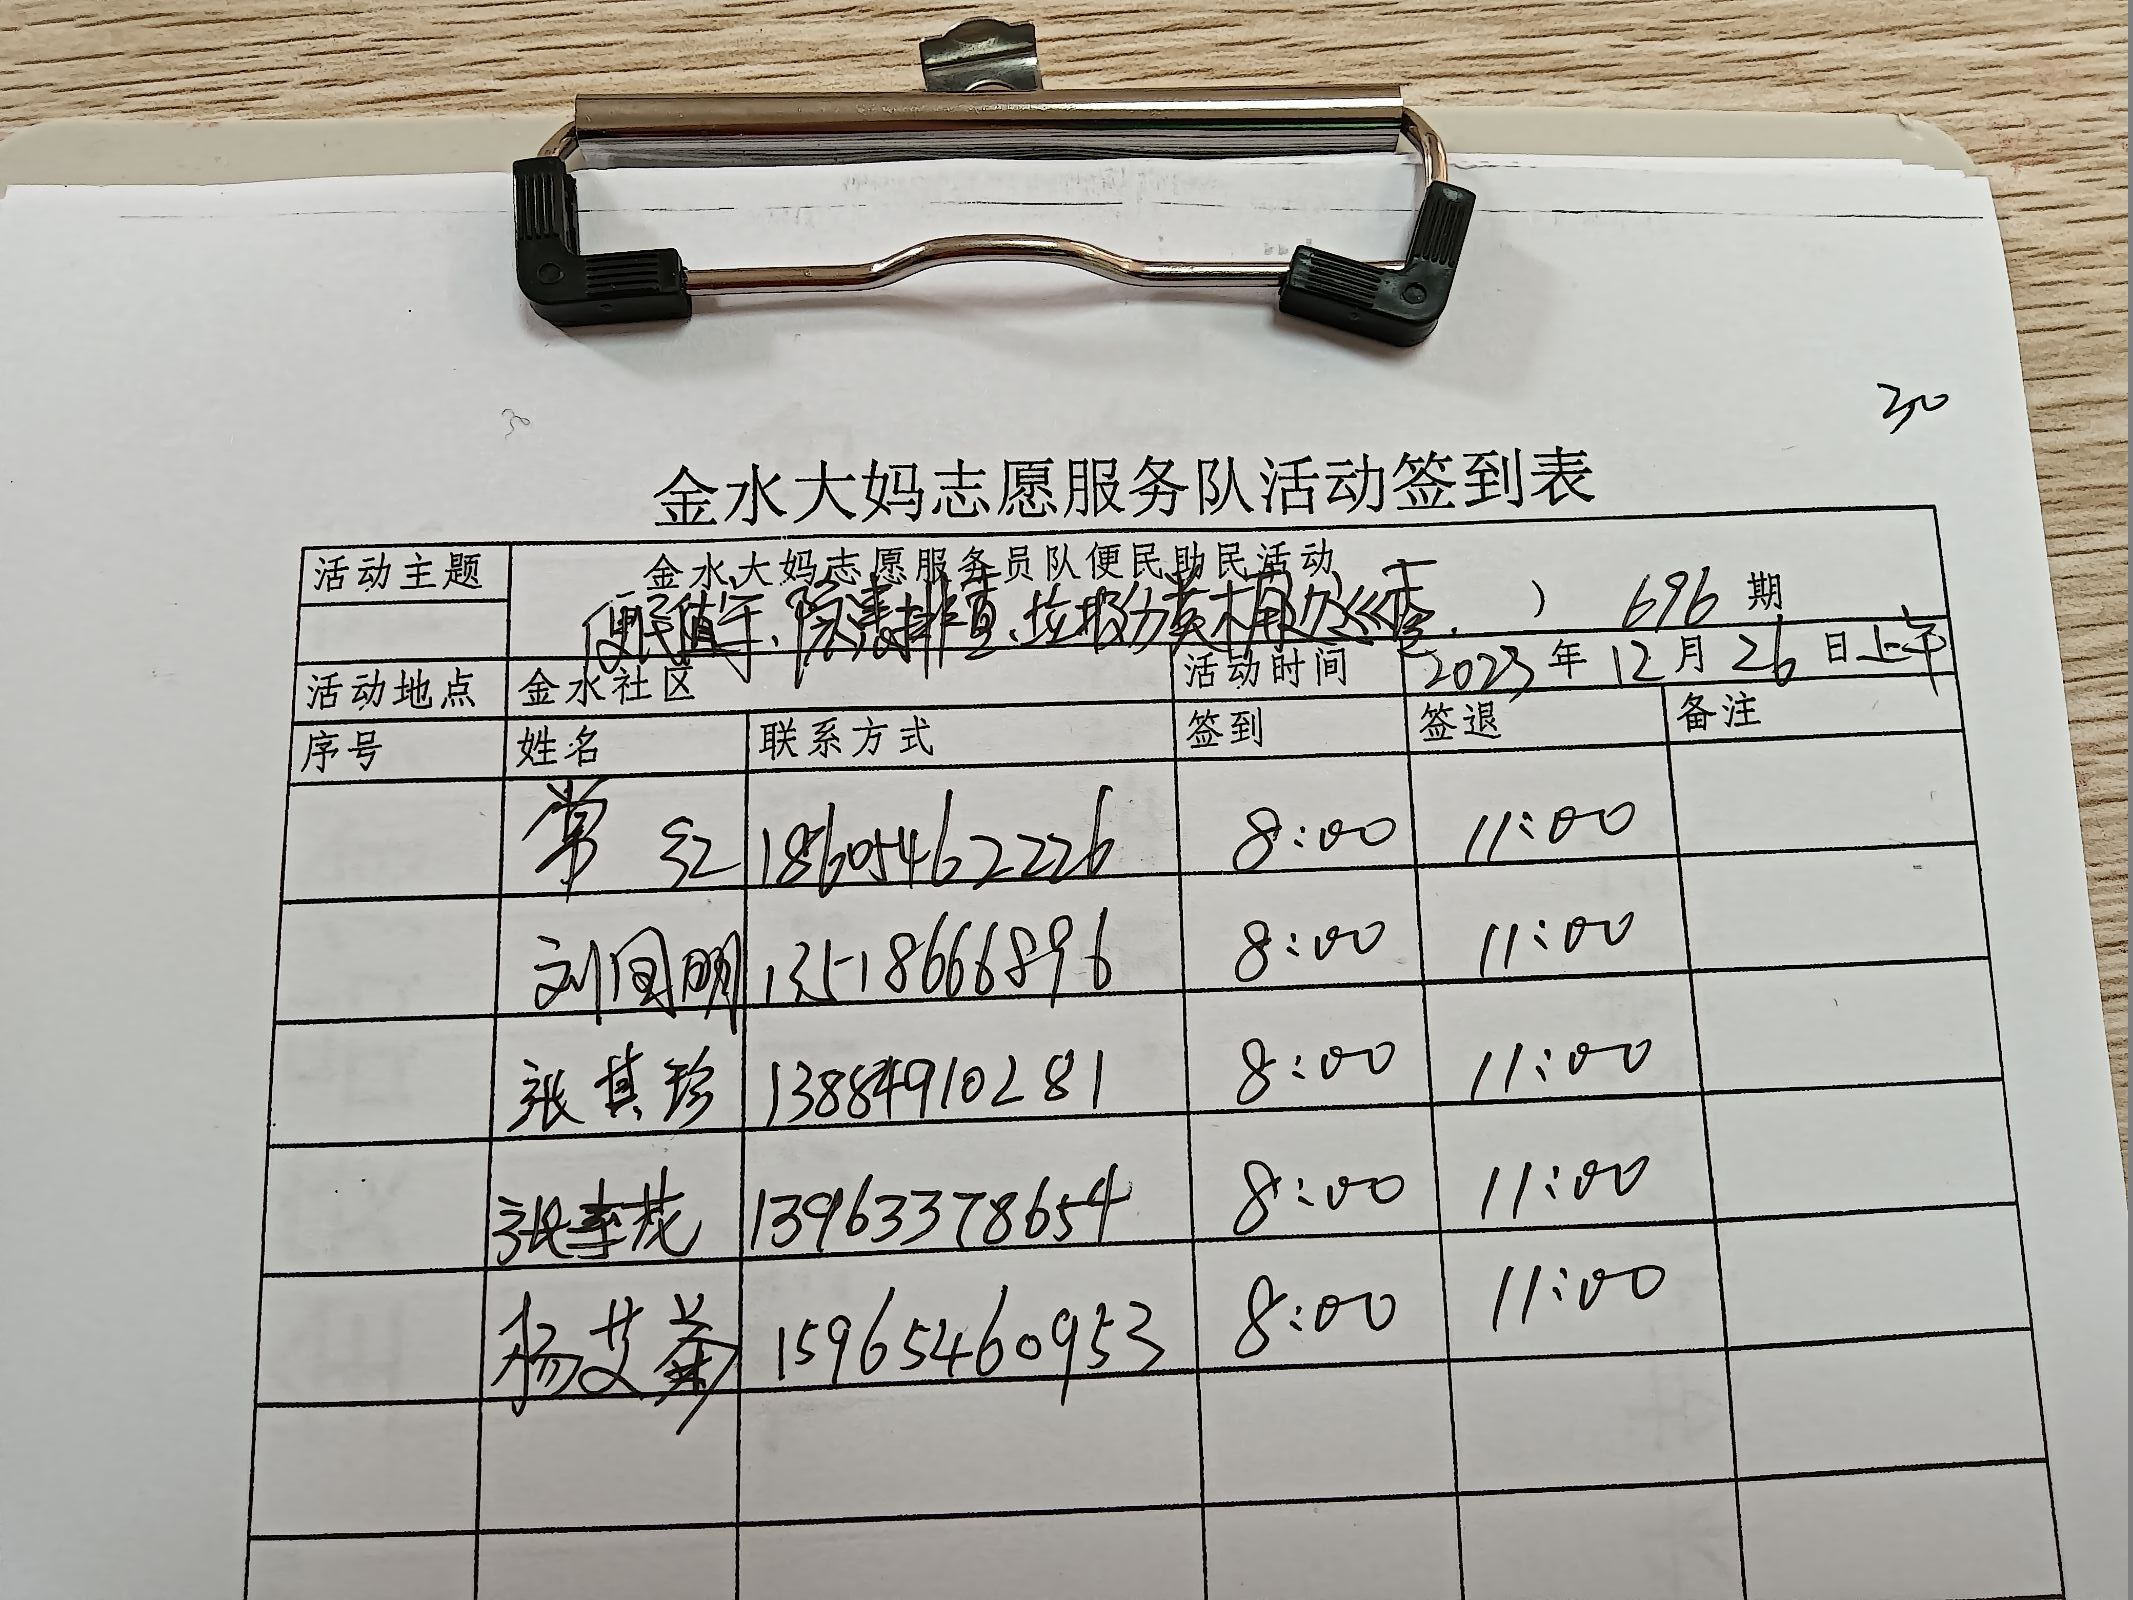 30
金水大妈志愿服务队活动签到表
活动主题 金水大妈志愿服务员队便民助民活动
便民值午、隐患排查、垃圾分类 ） 696 期
活动地点 金水社区 活动时间 2023 年 12 月 26 日上午
序号 姓名 联系方式 签到 签退 备注
常红 18605462226 8:00 11:00
刘同明 13518666896 8:00 11:00
张其珍 13884910281 8:00 11:00
张李茂 13963378654 8:00 11:00
杨艾 15965460953 8:00 11:00